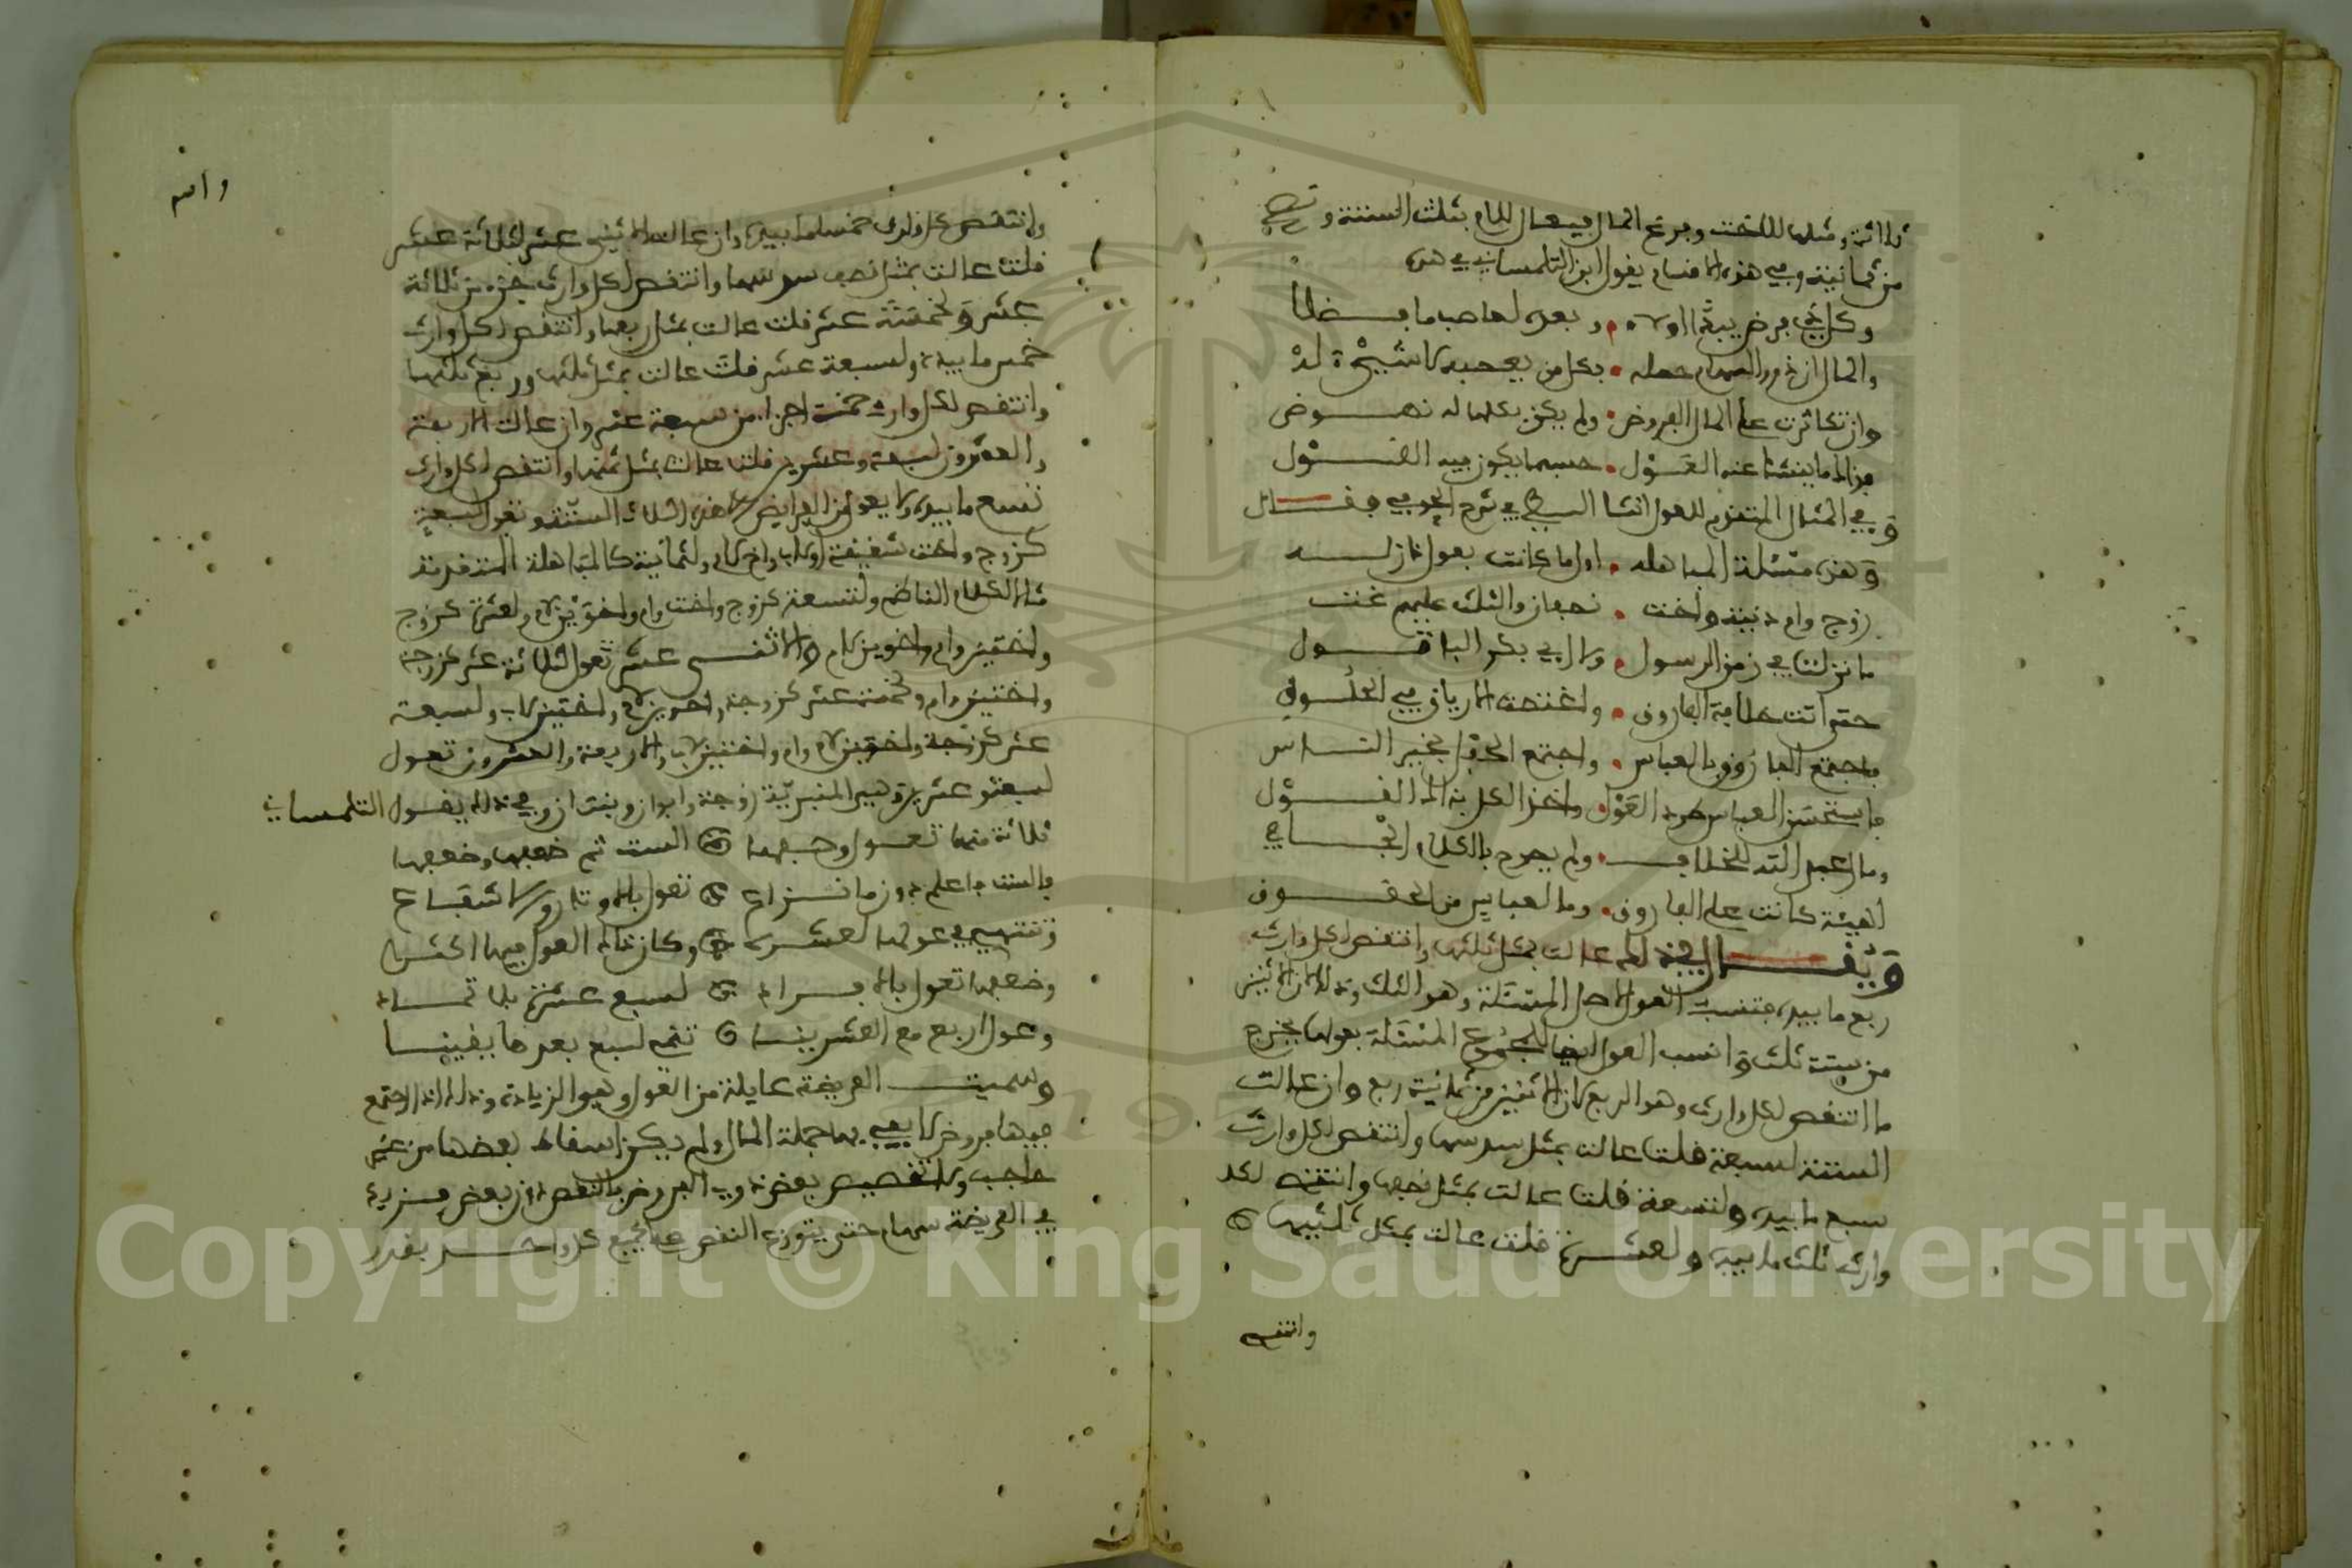 ثلاثة ومثلها للأخت وفرغ المال فيعال للام بثلث الستة وتصير
من ثمانية وفي هذه الاقسام يقول ابن التلمساني في هذه
وكل ذي فرض يبدّا اولا • وبعده لعاصب ما فضلا
والمال ان ذوو السهام
وان تكاثرت على المال الفروض • ولم يكن بكلها له نهوض
فذاك ما ينشا عنه العَوْل • حسبما يكون فيه القول
وفي المثال المتقدم للعول انشا السطي في شرح الحوفي فقال
وهذه مسئلة المباهله • اول ما كانت بعول نازله
زوج وام دنية وأخت • نصفان والثلث عليهم
ما نزلت في زمن الرسول • ولا ابي بكر
حتى اتت خلافة الفاروق •
فاجتمع الفاروق بالعباس • واجتمع الحفل بخير الناس
فاستحسن العباس هذا العَوْل • واخذ الكل بذاك القول
وما لعبد الله للخلاف • ولم يصرح بالكلام الجافي
الهيبة كانت على الفاروق • وما لعباس من الحقوق
ويقال في ذلك عالت بمثل ثلثها وانتقص لكل وارث
ربع ما بيده فتنسب العول لاصل المسئلة وهو الثلث وذلك ان الاثنين
من ستة ثلث وانسب العول ايضا لمجموع المسئلة بعولها يخرج
ما انتقص لكل وارث وهو الربع لان الاثنين من ثمانية ربع وان عالت
الستة لسبعة قلت عالت بمثل سدسها وانتقص لكل وارث
سبع ما بيده ولتسعة قلت عالت بمثل نصفها وانتقص لكل
وارث ثلث ما بيده ولعشرة قلت عالت بمثل ثلثيها
وانتقص
وانتقص لكل وارث خمسا ما بيده وان عالت الاثني عشر لثلاثة عشر
قلت عالت بمثل نصف سدسها وانتقص لكل وارث جزء من ثلاثة
عشر ولخمسة عشر قلت عالت بمثل ربعها وانتقص لكل وارث
خمس ما بيده ولسبعة عشر قلت عالت بمثل ثلثها وربع ثلثها
وانتقص لكل وارث خمسة اجزا من سبعة عشر وان عالت الاربعة
والعشرون لسبعة وعشرين قلت عالت بمثل ثمنها وانتقص لكل وارث
تسع ما بيده ولا يعول من الفرايض الا هذه الثلاث الستة تعول لسبعة
كزوج واخت شقيقة او لاب واخ لام ولثمانية كالمباهلة المتقدمة
مثال لكلام الناظم ولتسعة كزوج واخت وام واخوين لام ولعشرة كزوج
واختين وام واخوين لام والاثني عشر تعول لثلاثة عشر كزوجة
واختين وام ولخمسة عشر كزوجة واخوين لام واختين لاب ولسبعة
عشر كزوجة واخوين لام وام واختين لاب والاربعة والعشرون تعول
لسبعة وعشرين وهي المنبرية زوجة وابوان وبنتان وفي ذلك يقول التلمساني
ثلاثة منها تعول وحسبها الست ثم ضعفها وضعفها
فالست فاعلم دون ما نزاع تعول بالاوتار والاشفاع
وتنتهي في عولها لعشره وكان ذاك العول فيها اكثره
وضعفها تعول بالافراد لسبع عشرة بلا تماد
وعول اربع مع العشرينا
وسميت الفريضة عايلة من العول وهو الزيادة وذلك اذا اجتمع
فيها فروض لا يفي بها جملة المال ولم يمكن اسقاط بعضها من غير
حاجب ولا تخصيص بعض ذوي الفروض بالنقص دون بعض فزيد
في الفريضة سهام حتى يتوزع النقص على الجميع كل واحد بقدر